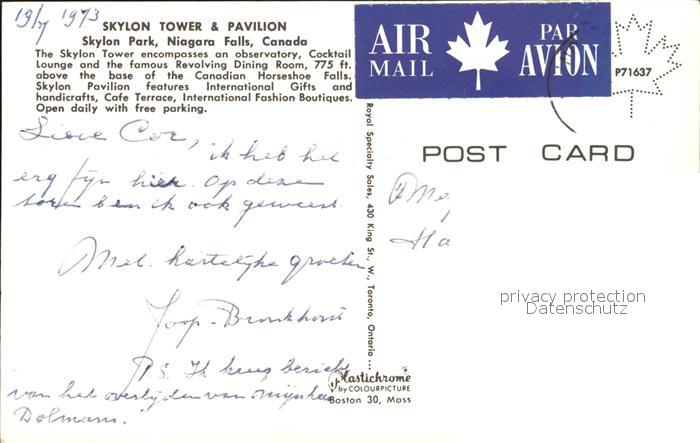 19/7 1973
SKYLON TOWER & PAVILION
Skylon Park, Niagara Falls, Canada
The Skylon Tower encompasses an observatory, Cocktail
Lounge and the famous Revolving Dining Room, 775 ft.
above the base of the Canadian Horseshoe Falls.
Skylon Pavilion features International Gifts and
handicrafts, Cafe Terrace, International Fashion Boutiques.
Open daily with free parking.
Lieve Cor,
ik heb het
erg fijn hier. Op deze
toren ben ik ook geweest.
Met hartelijke groeten
Joop Bronkhorst
P.S. Ik kreeg bericht
van het overlijden van mijnheer
Dolmans.
Royal Specialty Sales, 430 King St., W., Toronto, Ontario ...
Plastichrome®
by COLOURPICTURE
Boston 30, Mass
AIR
MAIL
PAR
AVION
P71637
POST CARD
Mej
Ha
privacy protection
Datenschutz